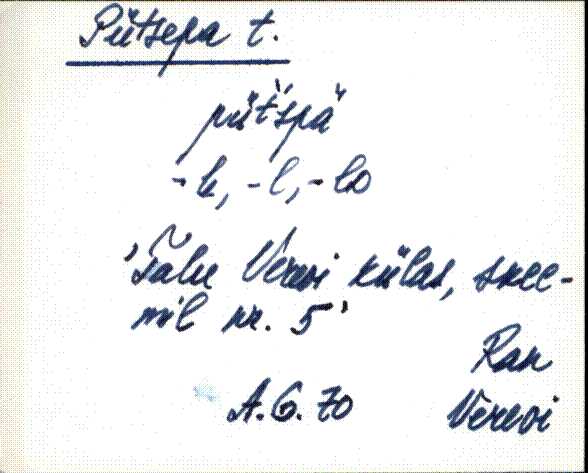 Pütsepa t.
püt'śpä
-h, -l, -lo
'Talu Verevi külas, skee-
mil nr. 5'
Ran
A.G.70 Verevi